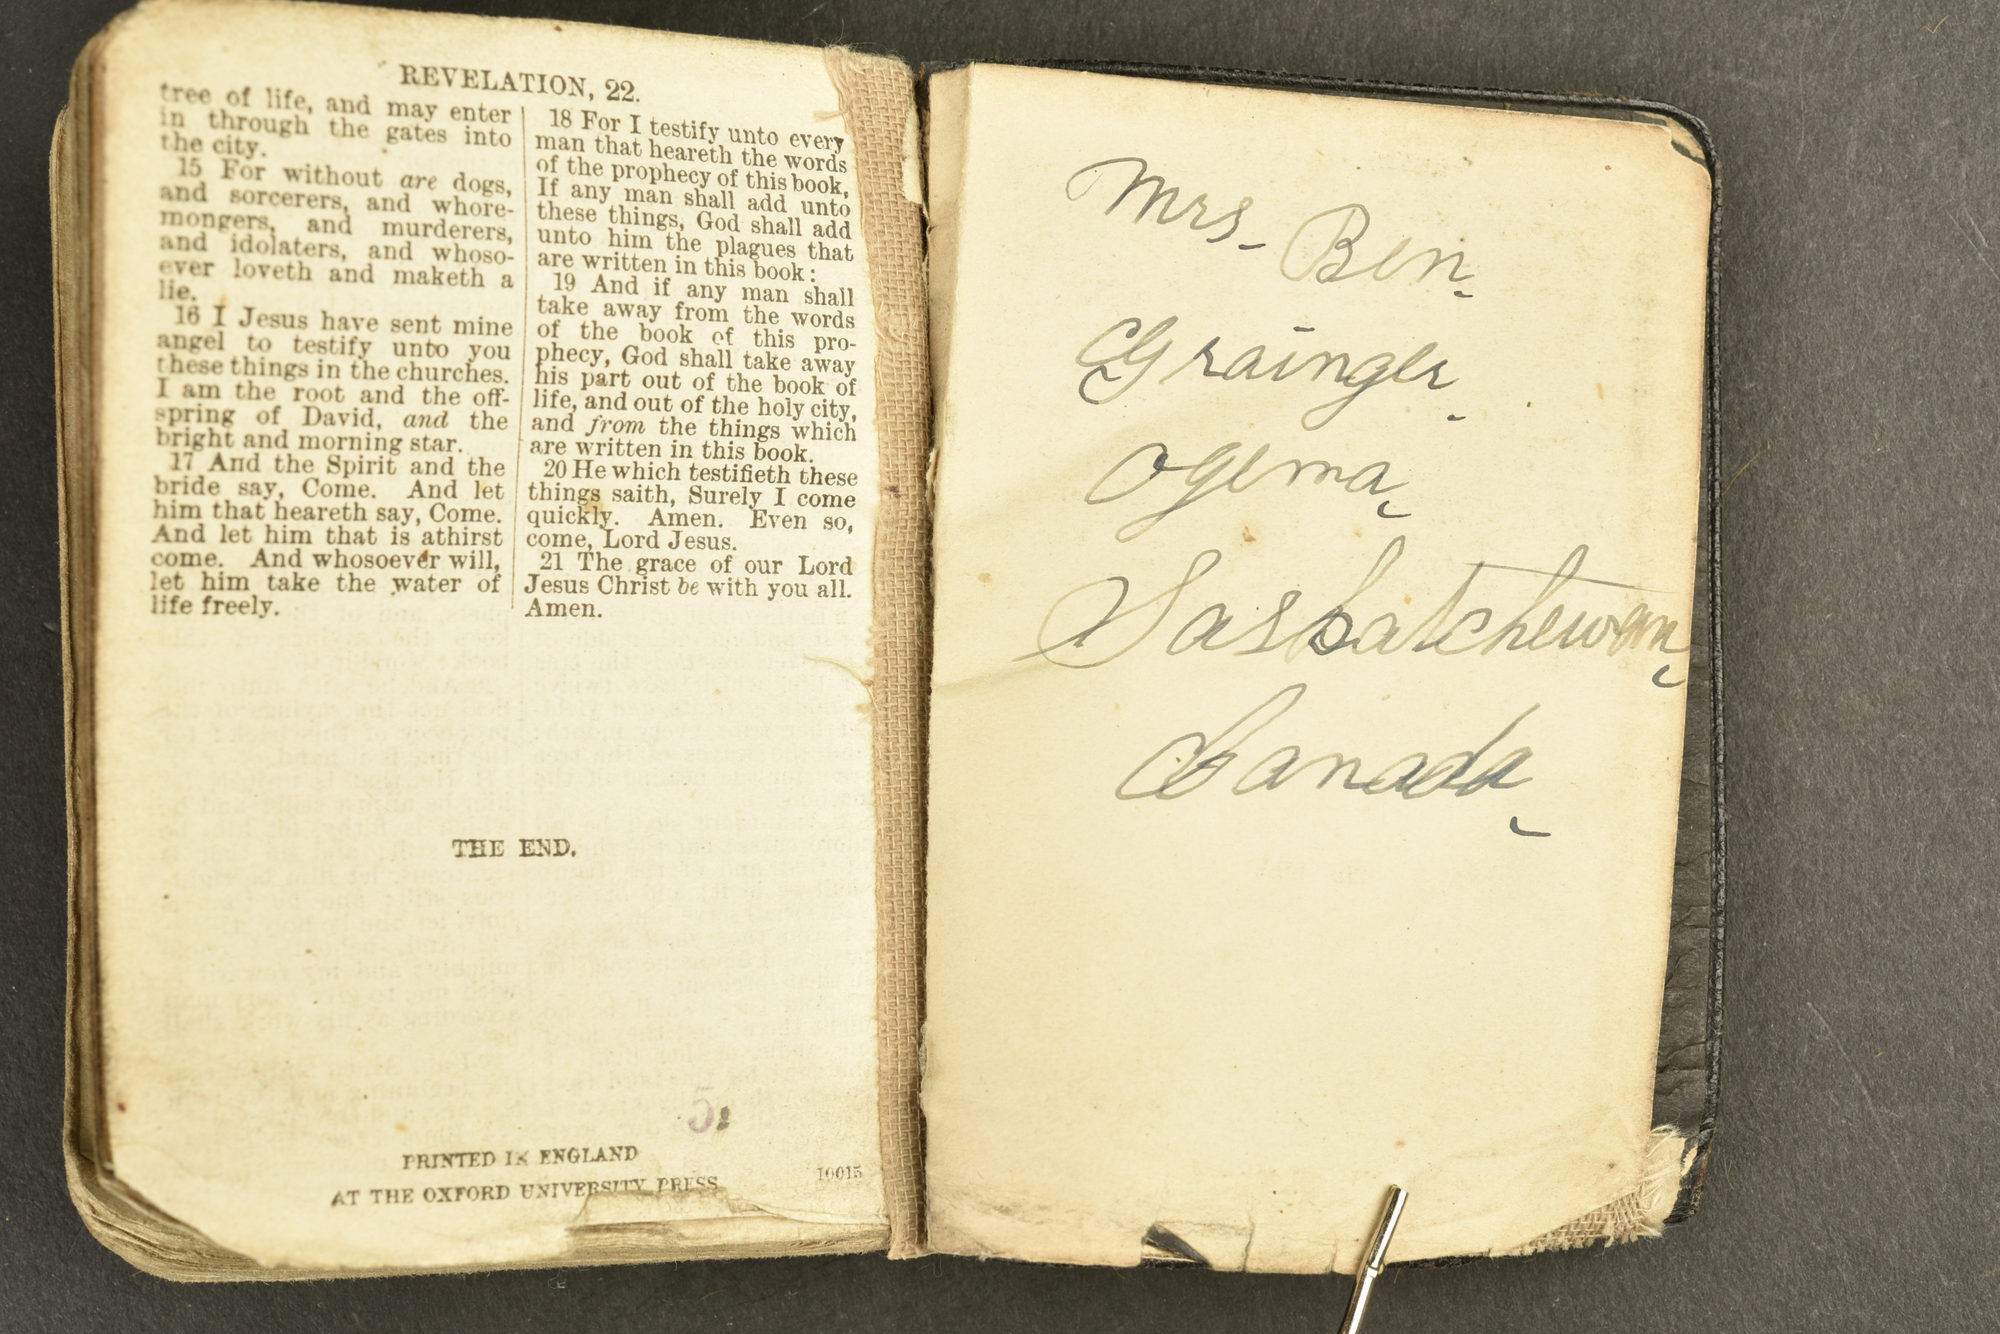 REVELATION, 22.
tree of life, and may enter
in through the gates into
the city.
15 For without are dogs,
and sorcerers, and whore-
mongers, and murderers,
and idolaters, and whoso-
ever loveth and maketh a
lie.
16 I Jesus have sent mine
angel to testify unto you
these things in the churches.
I am the root and the off-
spring of David, and the
bright and morning star.
17 And the Spirit and the
bride say, Come. And let
him that heareth say, Come.
And let him that is athirst
come. And whosoever will,
let him take the water of
life freely.
18 For I testify unto every
man that heareth the words
of the prophecy of this book,
If any man shall add unto
these things, God shall add
unto him the plagues that
are written in this book:
19 And if any man shall
take away from the words
of the book of this pro-
phecy, God shall take away
his part out of the book of
life, and out of the holy city,
and from the things which
are written in this book.
20 He which testifieth these
things saith, Surely I come
quickly. Amen. Even so,
come, Lord Jesus.
21 The grace of our Lord
Jesus Christ be with you all.
Amen.
THE END.
5
PRINTED IN ENGLAND
AT THE OXFORD UNIVERSITY PRESS
10015
Mrs. Ben.
Grainger.
Ogema,
Saskatchewan,
Canada,